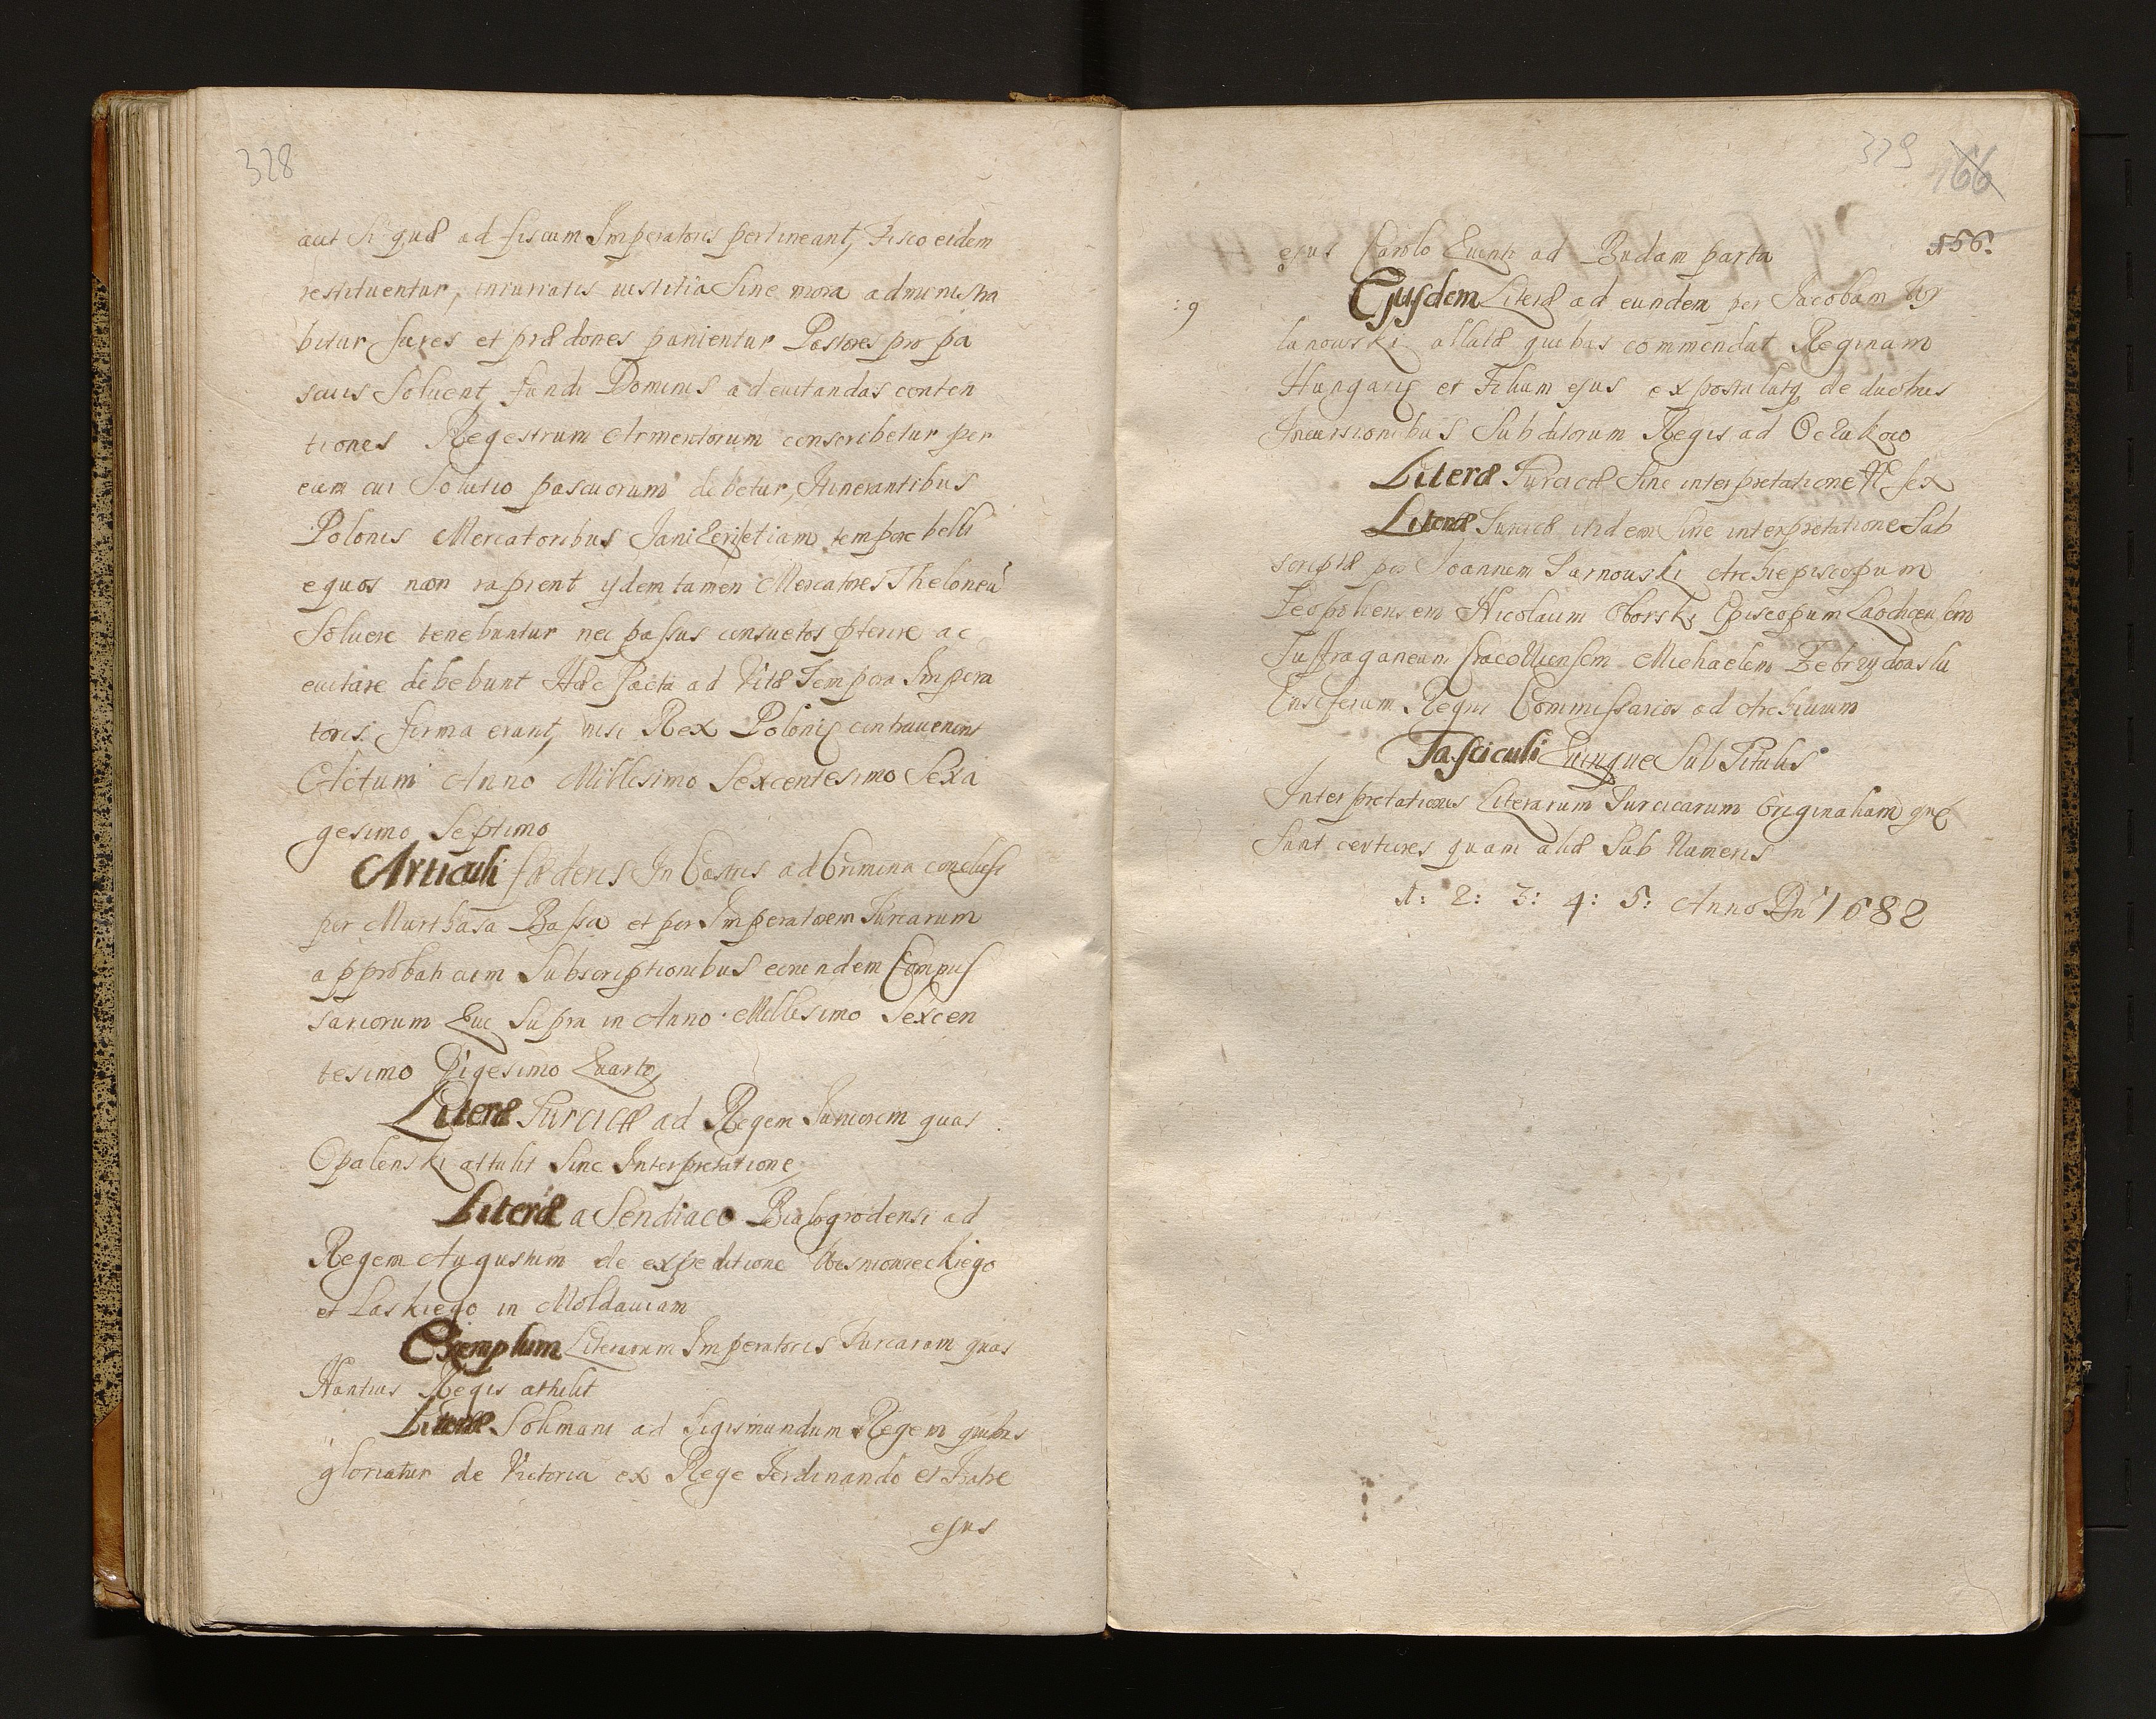 328
aut si quæ ad fiscum Imperatoris pertineant, Fisco eidem
restituentur, iniuriatis iustitia Sine mora administra
bitur fures et prædones punientur Pastores pro pa
scuis Soluent, fundi Dominis ad euitandas conten
tiones Regestrum Armentorum conscribetur per
eum cui Solutio pascuorum debetur, Itinerantibus
Polonis Mercatoribus Janizeri etiam tempore belli
equos non rapient ijdem tamen Mercatores Thelonea
Soluere tenebuntur nec passus consuetos pterire ac
euitare debebunt Hæc Pacta ad Vitæ Tempora Impera
toris firma erunt, nisi Rex Polonię contraueniens
Actum Anno Millesimo Sexcentesimo Sexa
gesimo Septimo
Articuli fæderis In Castris ad conclusi
per Murthasa Bassa et per Imperatorem Turcarum
approbati cum Subscriptionibus eorundem Commis
sariorum Quę Supra in Anno Millesimo Sexcen
tesimo Vigesimo Quarto,
Literæ Turcicæ ad Regem Juniorem quas
Opalenski attulit Sine Interpretatione,
Literæ a Sendiaco Bialogrodensi ad
Regem Augustum de expeditione Wisniowieckiego
et Laskiego in Moldauiam
Exemplum Literarum Imperatoris Turcarum quas
Nuntius Regis attulit
Literæ Solimani ad Sigismundum Regem quibus
gloriatur de Victoria ex Rege Ferdinando et Fratre
ejus
329
166
156.
ejus Carolo Quinto ad Budam parta
: 9
Ejusdem Literæ ad eundem per Jacobum Wy
lanowski allatæ quibus commendat Reginam
Hungarię et Filium ejus expostulatq de duobus
Incursionibus Subditorum Regis ad Oczakow
Literæ Turcicæ Sine interpretatione N sex
Literæ Turcicæ itidem Sine interpretatione Sub
scriptæ per Joannem Tarnowski Archiepiscopum
Leopoliensem Nicolaum Oborski Episcopum Laodicensem
Suffraganeum Cracouiensem Michaelem Zebrzydowski
Ensiferum Regni Commissarios ad Archiuum
Fasciculi Quinque Sub Titulis
Interpretationes Literarum Turcicarum Originalium quę
Sunt certiores quam aliæ Sub Numeris
1: 2: 3: 4: 5: Anno Dni 1682